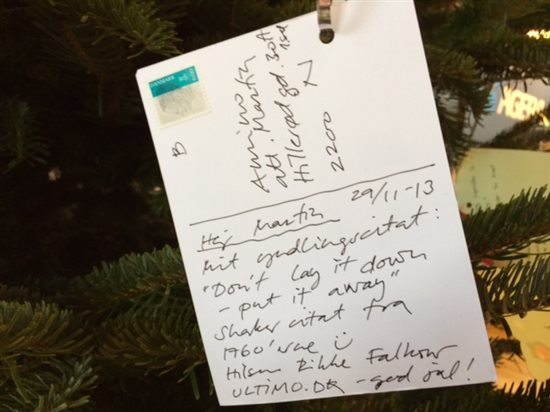 DANMARK
B
Amino
att. Martin
Hillerødgd. 30A
1sal
2200 N
Hej Martin 29/11-13
Mit yndlingscitat:
"Don't lay it down
- put it away"
Shaker citat fra
1960'erne
Hilsen Rikke
ULTIMO.DK - god jul!